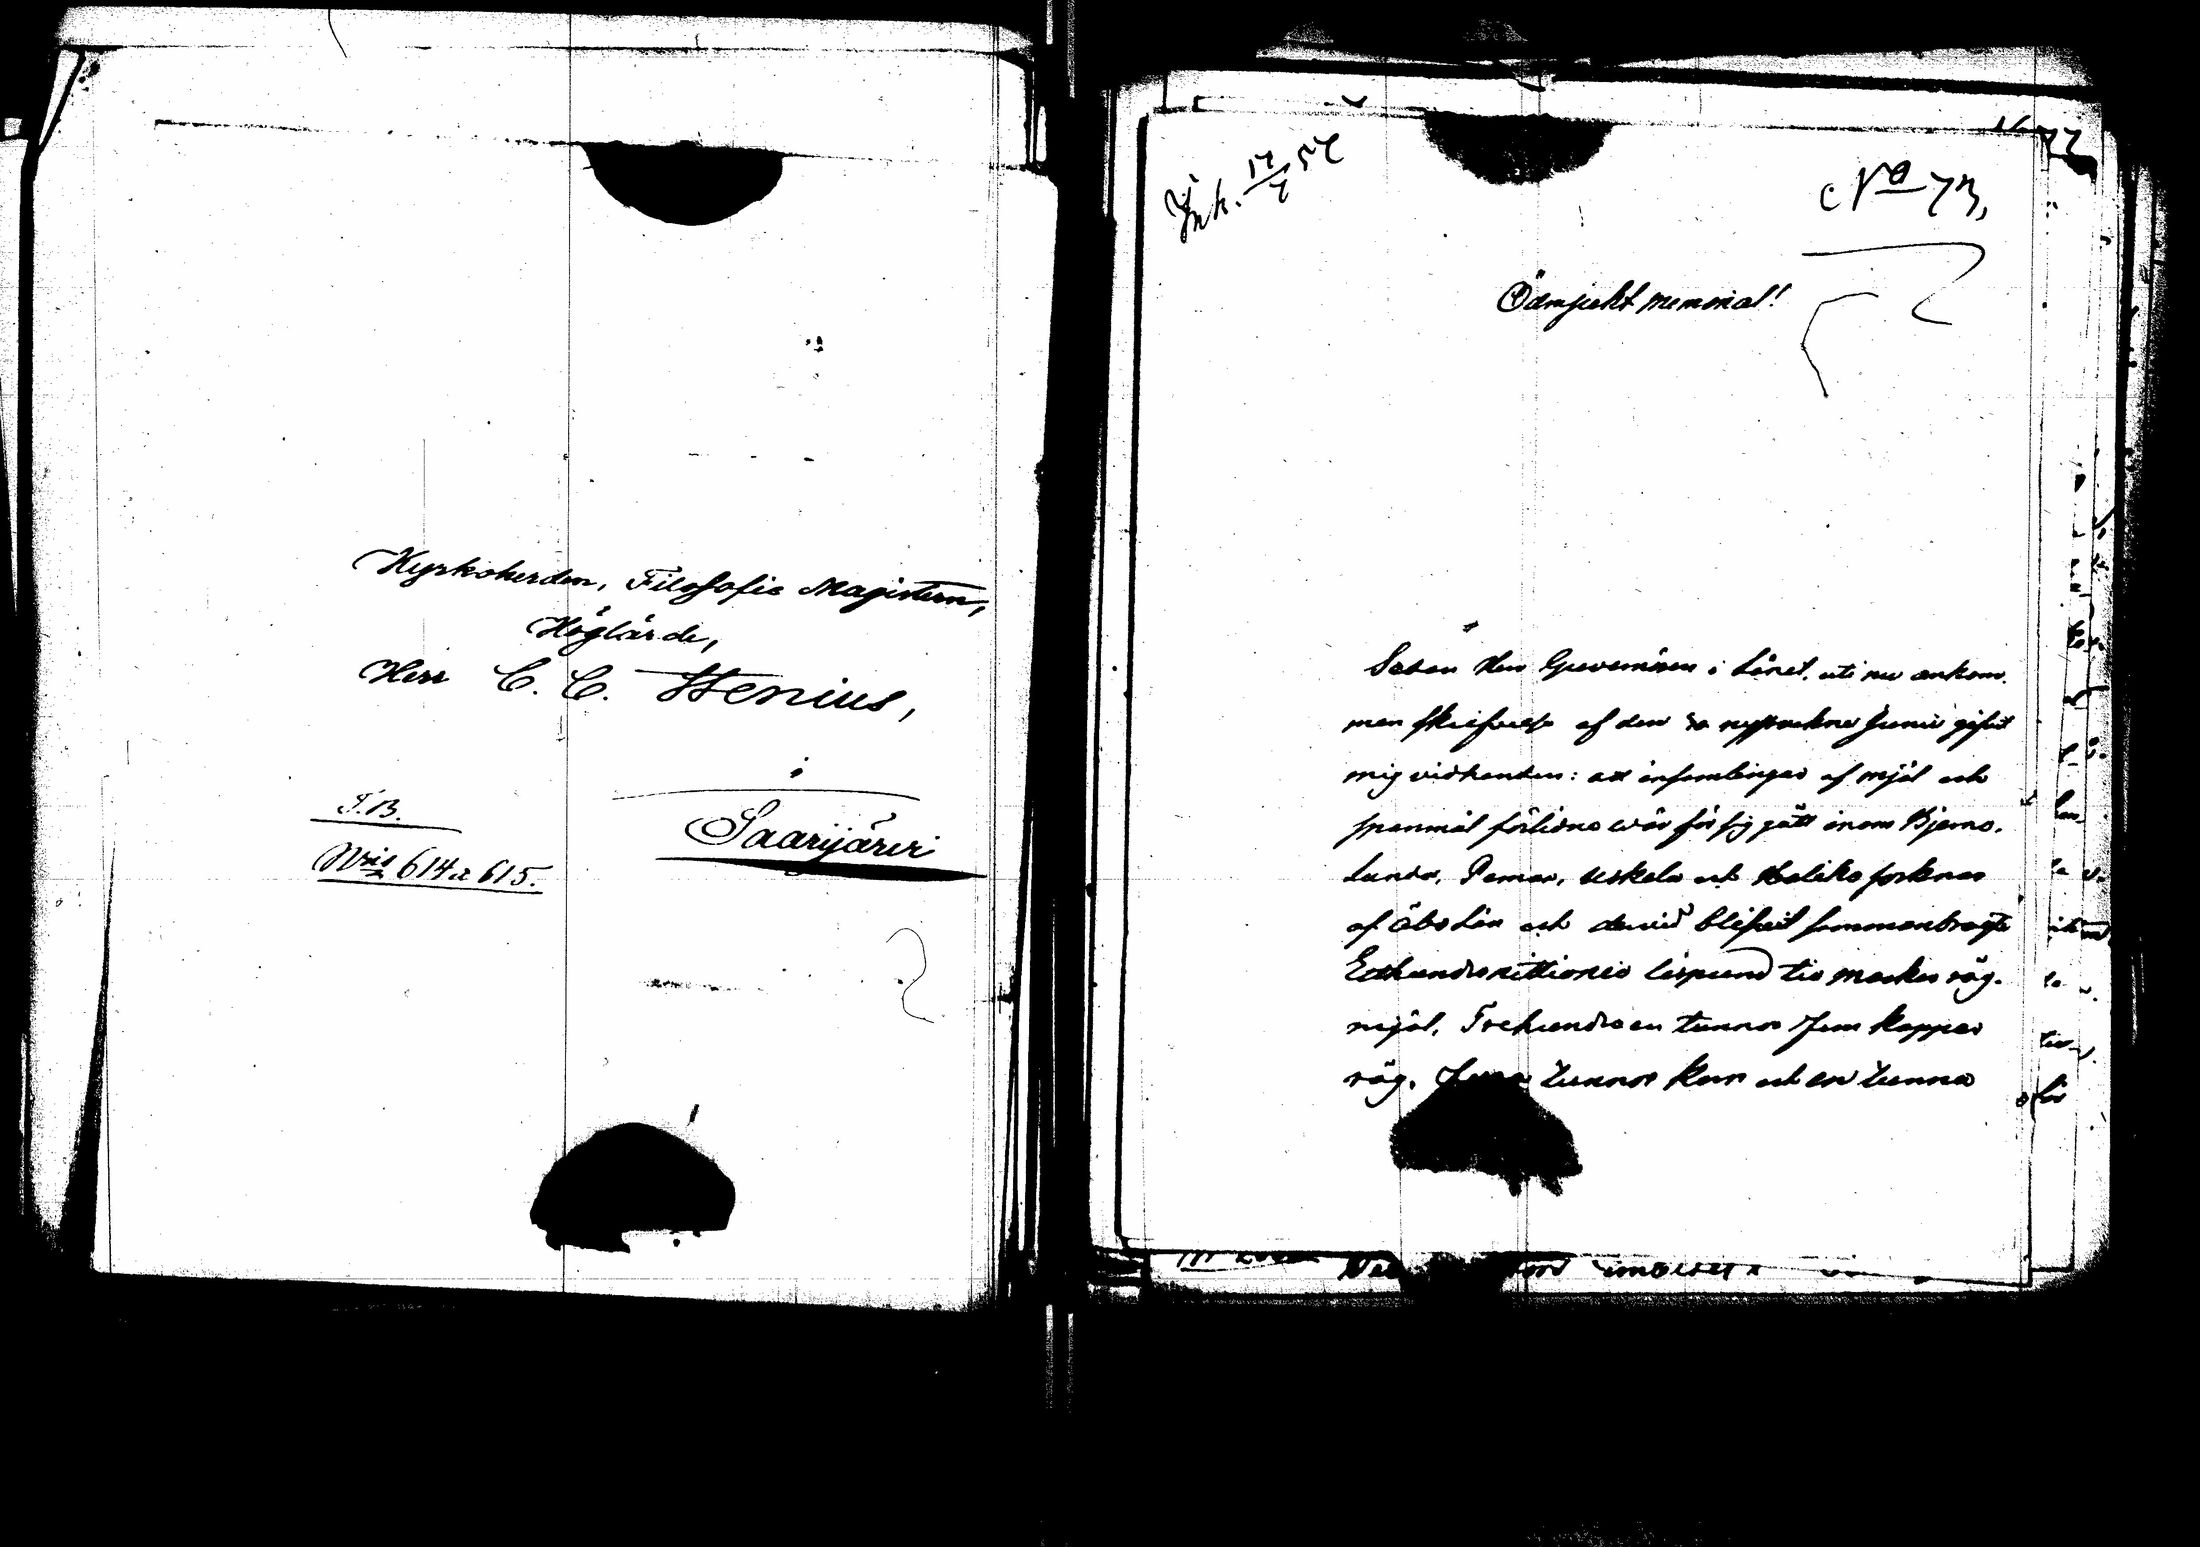 Kyrkoherden, Filosofie Magistern,
Höglärde,
Herr C. C. Stenius,
i
Saarijärvi
T.B.
N:ris 614 & 615.
Ink. 17/7 57
No 73,
Ödmjukt memorial!
Sedan Herr Guvernören i Länet, uti nu ankom-
men skrifvelse af den 30 nyssvekne Junii gifvit
mig vidhanden: att insamlingar af mjöl och
spanmål förlidne vår för sig gått inom Bjerno,
Lundo, Pemar, Uskela och Haliko socknar
af Åbo Län och dervid blifvit sammanbragte
Etthundranittionio lispund tio marker råg-
mjöl, Trehundraen tunnor fem kappar
råg, tunnor korn och en tunna